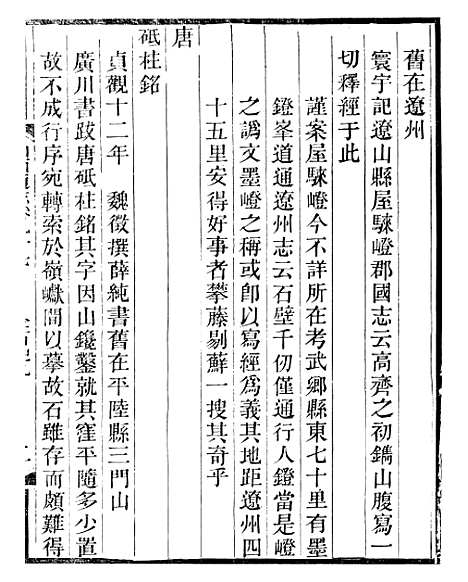 舊在遼州
寰宇記遼山縣屋騋嶝郡國志云高齊之初鐫山腹寫一
切釋經于此
謹案屋騋嶝今不詳所在考武鄉縣東七十里有墨
鐙峯道通遼州志云石壁千仞僅通行人鐙當是嶝
之譌文墨嶝之稱或卽以寫經爲義其地距遼州四
十五里安得好事者攀藤剔蘚一搜其奇乎
唐
砥柱銘
貞觀十二年　魏徵撰薛純書舊在平陸縣三門山
廣川書跋唐砥柱銘其字因山鑱鑿就其窪平隨多少置
故不成行序宛轉索於嶺巘間以摹故石雖存而頗難得